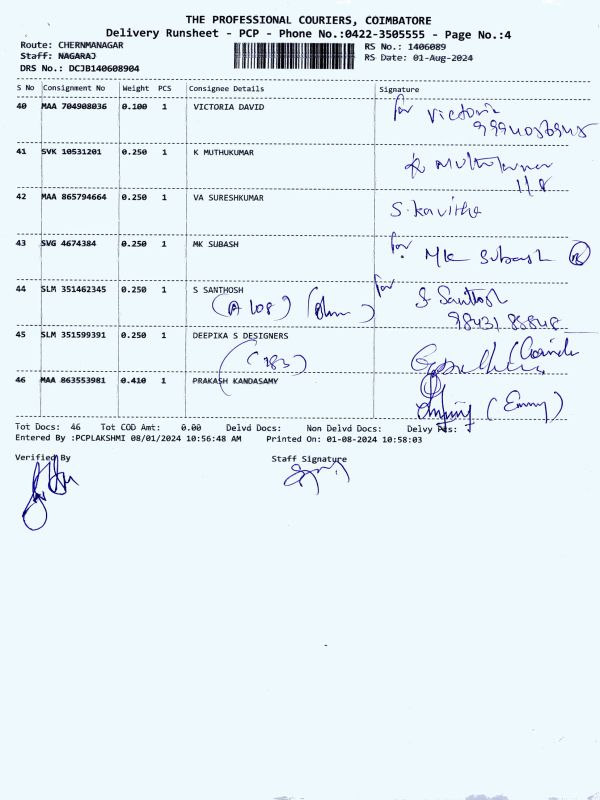 THE PROFESSIONAL COURIERS, COIMBATORE
Delivery Runsheet - PCP - Phone No.:0422-3505555 - Page No.:4
Route: CHERNMANAGAR RS No.: 1406089
Staff: NAGARAJ RS Date: 01-Aug-2024
DRS No.: DCJB140608904
S No Consignment No Weight PCS Consignee Details Signature
40 MAA 704908036 0.100 1 VICTORIA DAVID for Victoria
41 SVK 10531201 0.250 1 K MUTHUKUMAR K Muthukumar
11/8
42 MAA 865794664 0.250 1 VA SURESHKUMAR S. Kavitha
43 SVG 4674384 0.250 1 MK SUBASH for MK Subash
44 SLM 351462345 0.250 1 S SANTHOSH for S Santhosh
(A 108) 98431 88848
45 SLM 351599391 0.250 1 DEEPIKA S DESIGNERS
(183)
46 MAA 863553981 0.410 1 PRAKASH KANDASAMY
Tot Docs: 46 Tot COD Amt: 0.00 Delvd Docs: Non Delvd Docs: Delvy Pcs:
Entered By :PCPLAKSHMI 08/01/2024 10:56:48 AM Printed On: 01-08-2024 10:58:03
Verified By Staff Signature